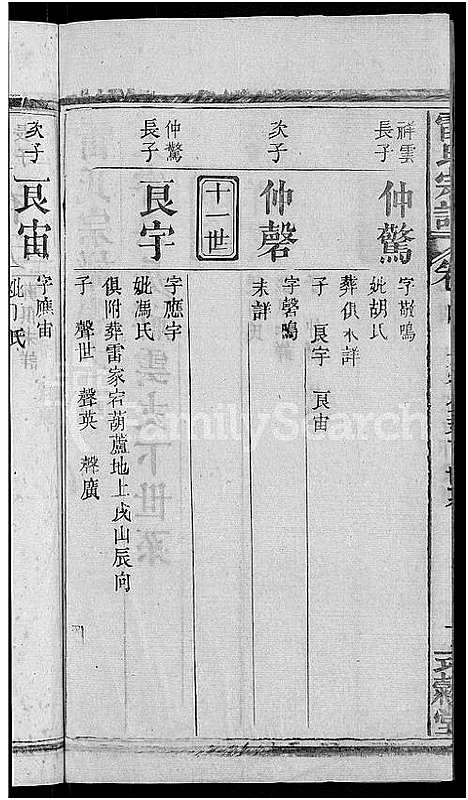 雷氏宗譜
祥雲
長子
仲驚
字敬鳴
妣胡氏
葬俱未詳
子 良宇 良宙
次子
仲磬
字磬鳴
未詳
十一世
仲驚
長子
良宇
字應宇
妣馮氏
俱附葬雷家宕葫蘆地上戌山辰向
子 聲世 聲英 聲廣
次子
良宙
字應宙
FamilySearch